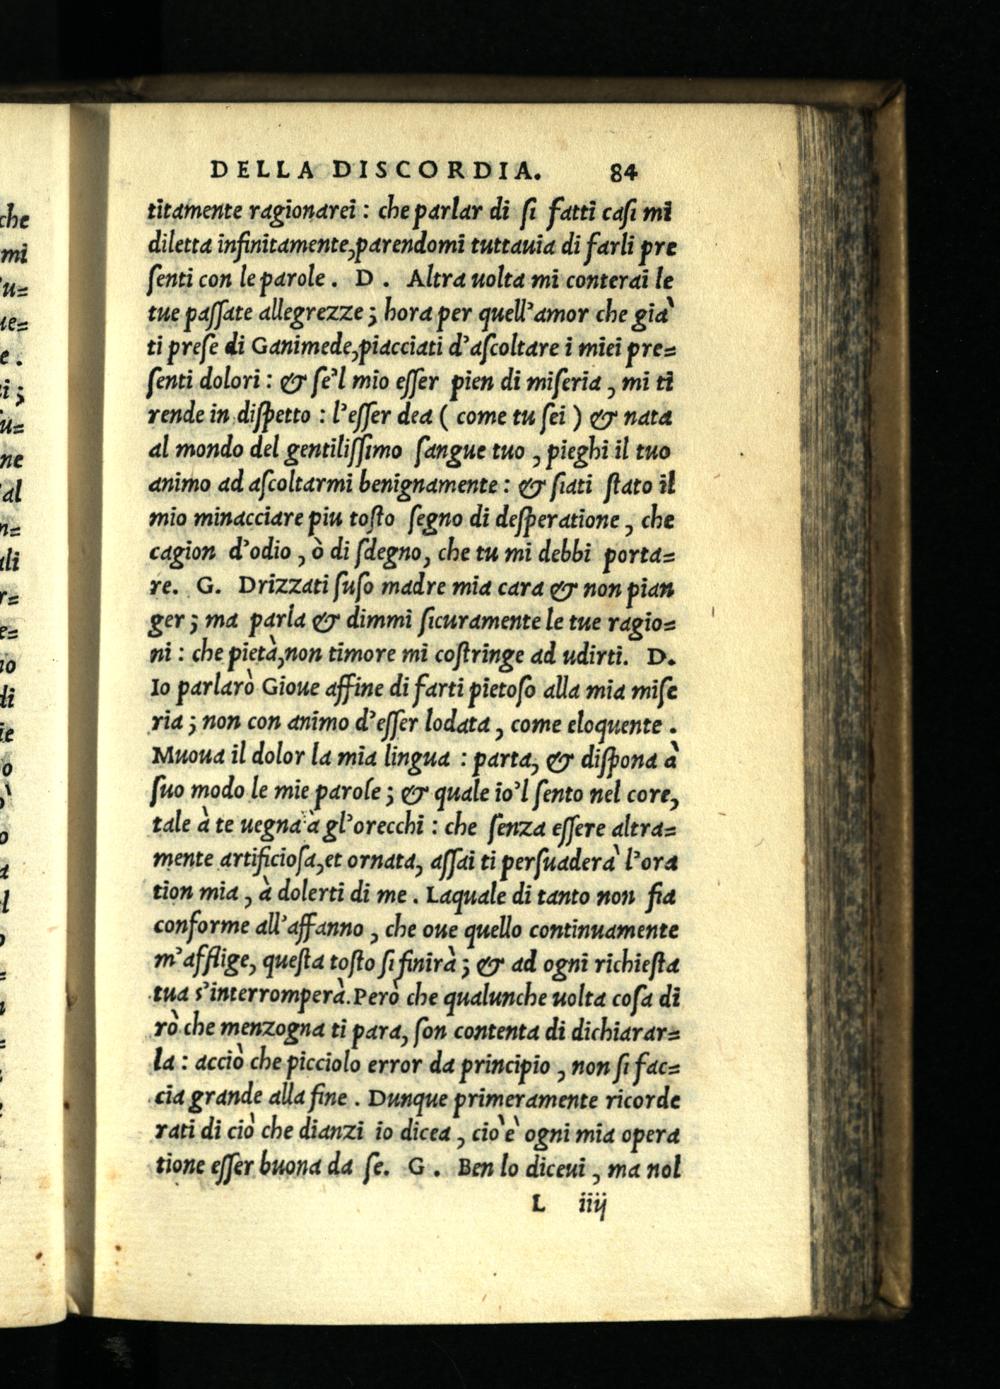 DELLA DISCORDIA. 84
titamente ragionarei : che parlar di ſi fatti caſi mi
diletta infinitamente, parendomi tuttauia di farli pre
ſenti con le parole . D . Altra uolta mi conterai le
tue paſſate allegrezze ; hora per quell'amor che già
ti preſe di Ganimede, piacciati d'aſcoltare i miei pre=
ſenti dolori : & ſe'l mio eſſer pien di miſeria , mi ti
rende in diſpetto : l'eſſer dea ( come tu ſei ) & nata
al mondo del gentiliſſimo ſangue tuo , pieghi il tuo
animo ad aſcoltarmi benignamente : & ſiati ſtato il
mio minacciare piu toſto ſegno di deſperatione , che
cagion d'odio , ò di ſdegno, che tu mi debbi porta=
re. G. Drizzati ſuſo madre mia cara & non pian
ger ; ma parla & dimmi ſicuramente le tue ragio=
ni : che pietà, non timore mi coſtringe ad udirti. D.
Io parlarò Gioue affine di farti pietoſo alla mia miſe
ria ; non con animo d'eſſer lodata , come eloquente .
Muoua il dolor la mia lingua : parta, & diſpona à
ſuo modo le mie parole ; & quale io'l ſento nel core,
tale à te uegna à gl'orecchi : che ſenza eſſere altra=
mente artificioſa, et ornata, aſſai ti perſuaderà l'ora
tion mia , à dolerti di me . Laquale di tanto non fia
conforme all'affanno , che oue quello continuamente
m'afflige, queſta toſto ſi finirà ; & ad ogni richieſta
tua s'interromperà. Però che qualunche uolta coſa di
rò che menzogna ti para, ſon contenta di dichiarar=
la : acciò che picciolo error da principio , non ſi fac=
cia grande alla fine . Dunque primeramente ricorde
rati di ciò che dianzi io dicea , ciò è ogni mia opera
tione eſſer buona da ſe. G . Ben lo diceui , ma nol
L iiij
che
mi
'u=
ue=
e .
i ;
u=
ne
'al
n=
ali
r=
e=
no
di
ie